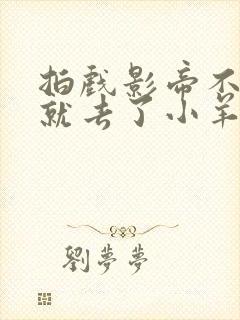 拍戏影帝不
就去了小羊
劉夢夢